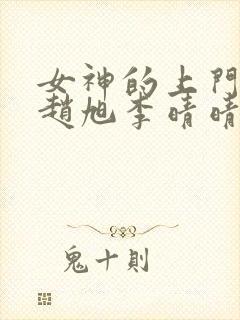 女神的上門
趙旭李晴晴
鬼十則